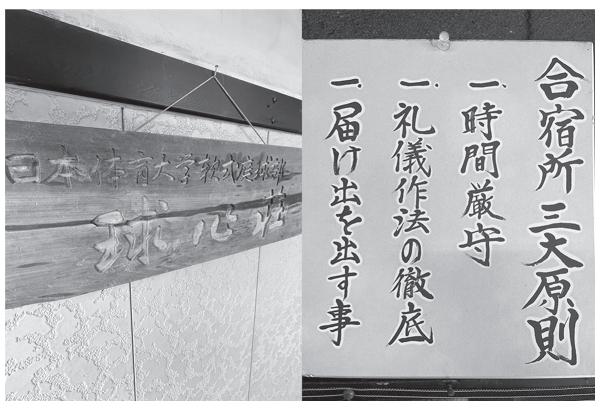 日本体育大学軟式庭球部
球心荘
合宿所三大原則
一、時間厳守
一、礼儀作法の徹底
一、届け出を出す事